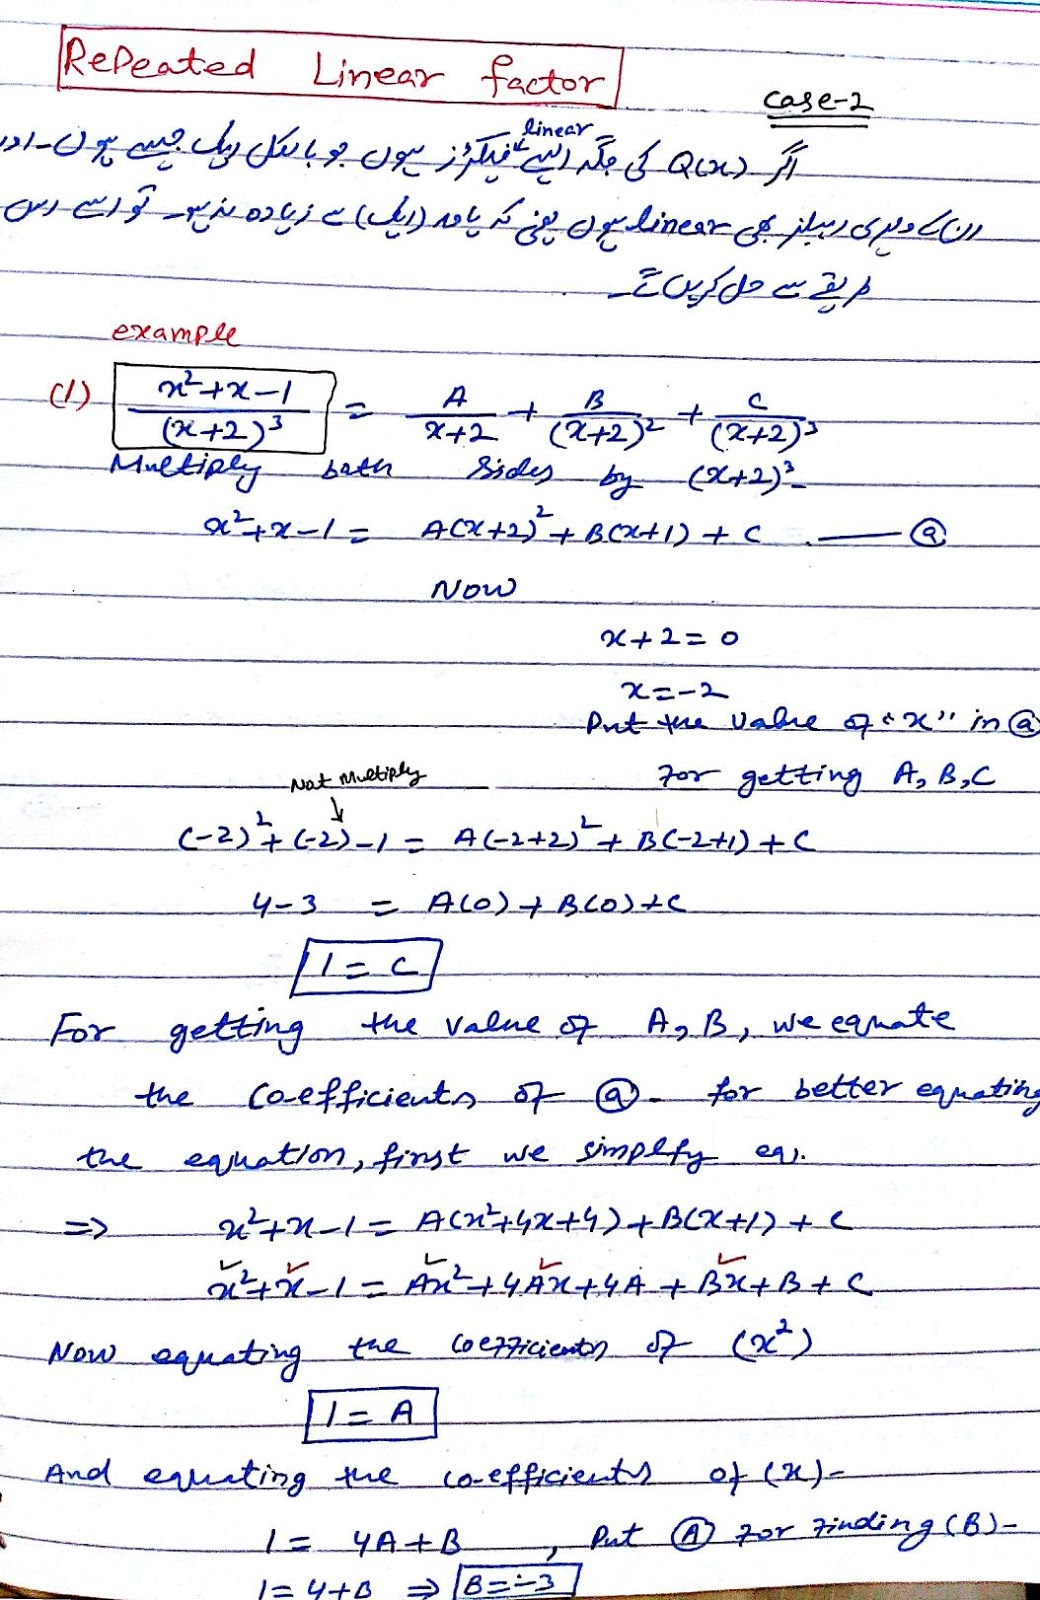 Repeated Linear factor
case-2
اگر Q(x) کی جگہ ایسے linear فیکٹرز ہوں جو بالکل ایک جیسے ہوں۔ اور
ان کے ویری ایبلز بھی linear ہوں یعنی کہ پاور (ایک) سے زیادہ نہ ہو۔ تو اسے اس
طریقے سے حل کریں گے۔
example
(1) x²+x-1/(x+2)³ = A/x+2 + B/(x+2)² + C/(x+2)³
Multiply both sides by (x+2)³-
x²+x-1 = A(x+2)²+B(x+1)+C .—— ⓐ
Now
x+2=0
x=-2
Put the value of "x" in ⓐ
For getting A, B, C
Not Multiply
(-2)²+(-2)-1 = A(-2+2)²+B(-2+1)+C
4-3 = A(0)+B(0)+C
1=C
For getting the value of A, B, we equate
the Co-efficients of ⓐ. for better equating
the equation, first we simplfy eq).
=> x²+x-1 = A(x²+4x+4)+B(x+1)+C
x²+x-1 = Ax²+4Ax+4A+Bx+B+C
Now equating the coefficients of (x²)
1=A
And equating the co-efficients of (x)-
1= 4A+B , Put Ⓐ For Finding (B)-
1=4+B ⇒ B=-3